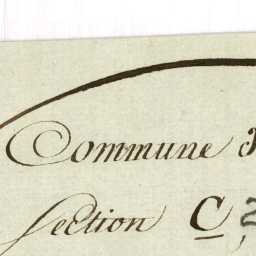 Commune
Section C, 2